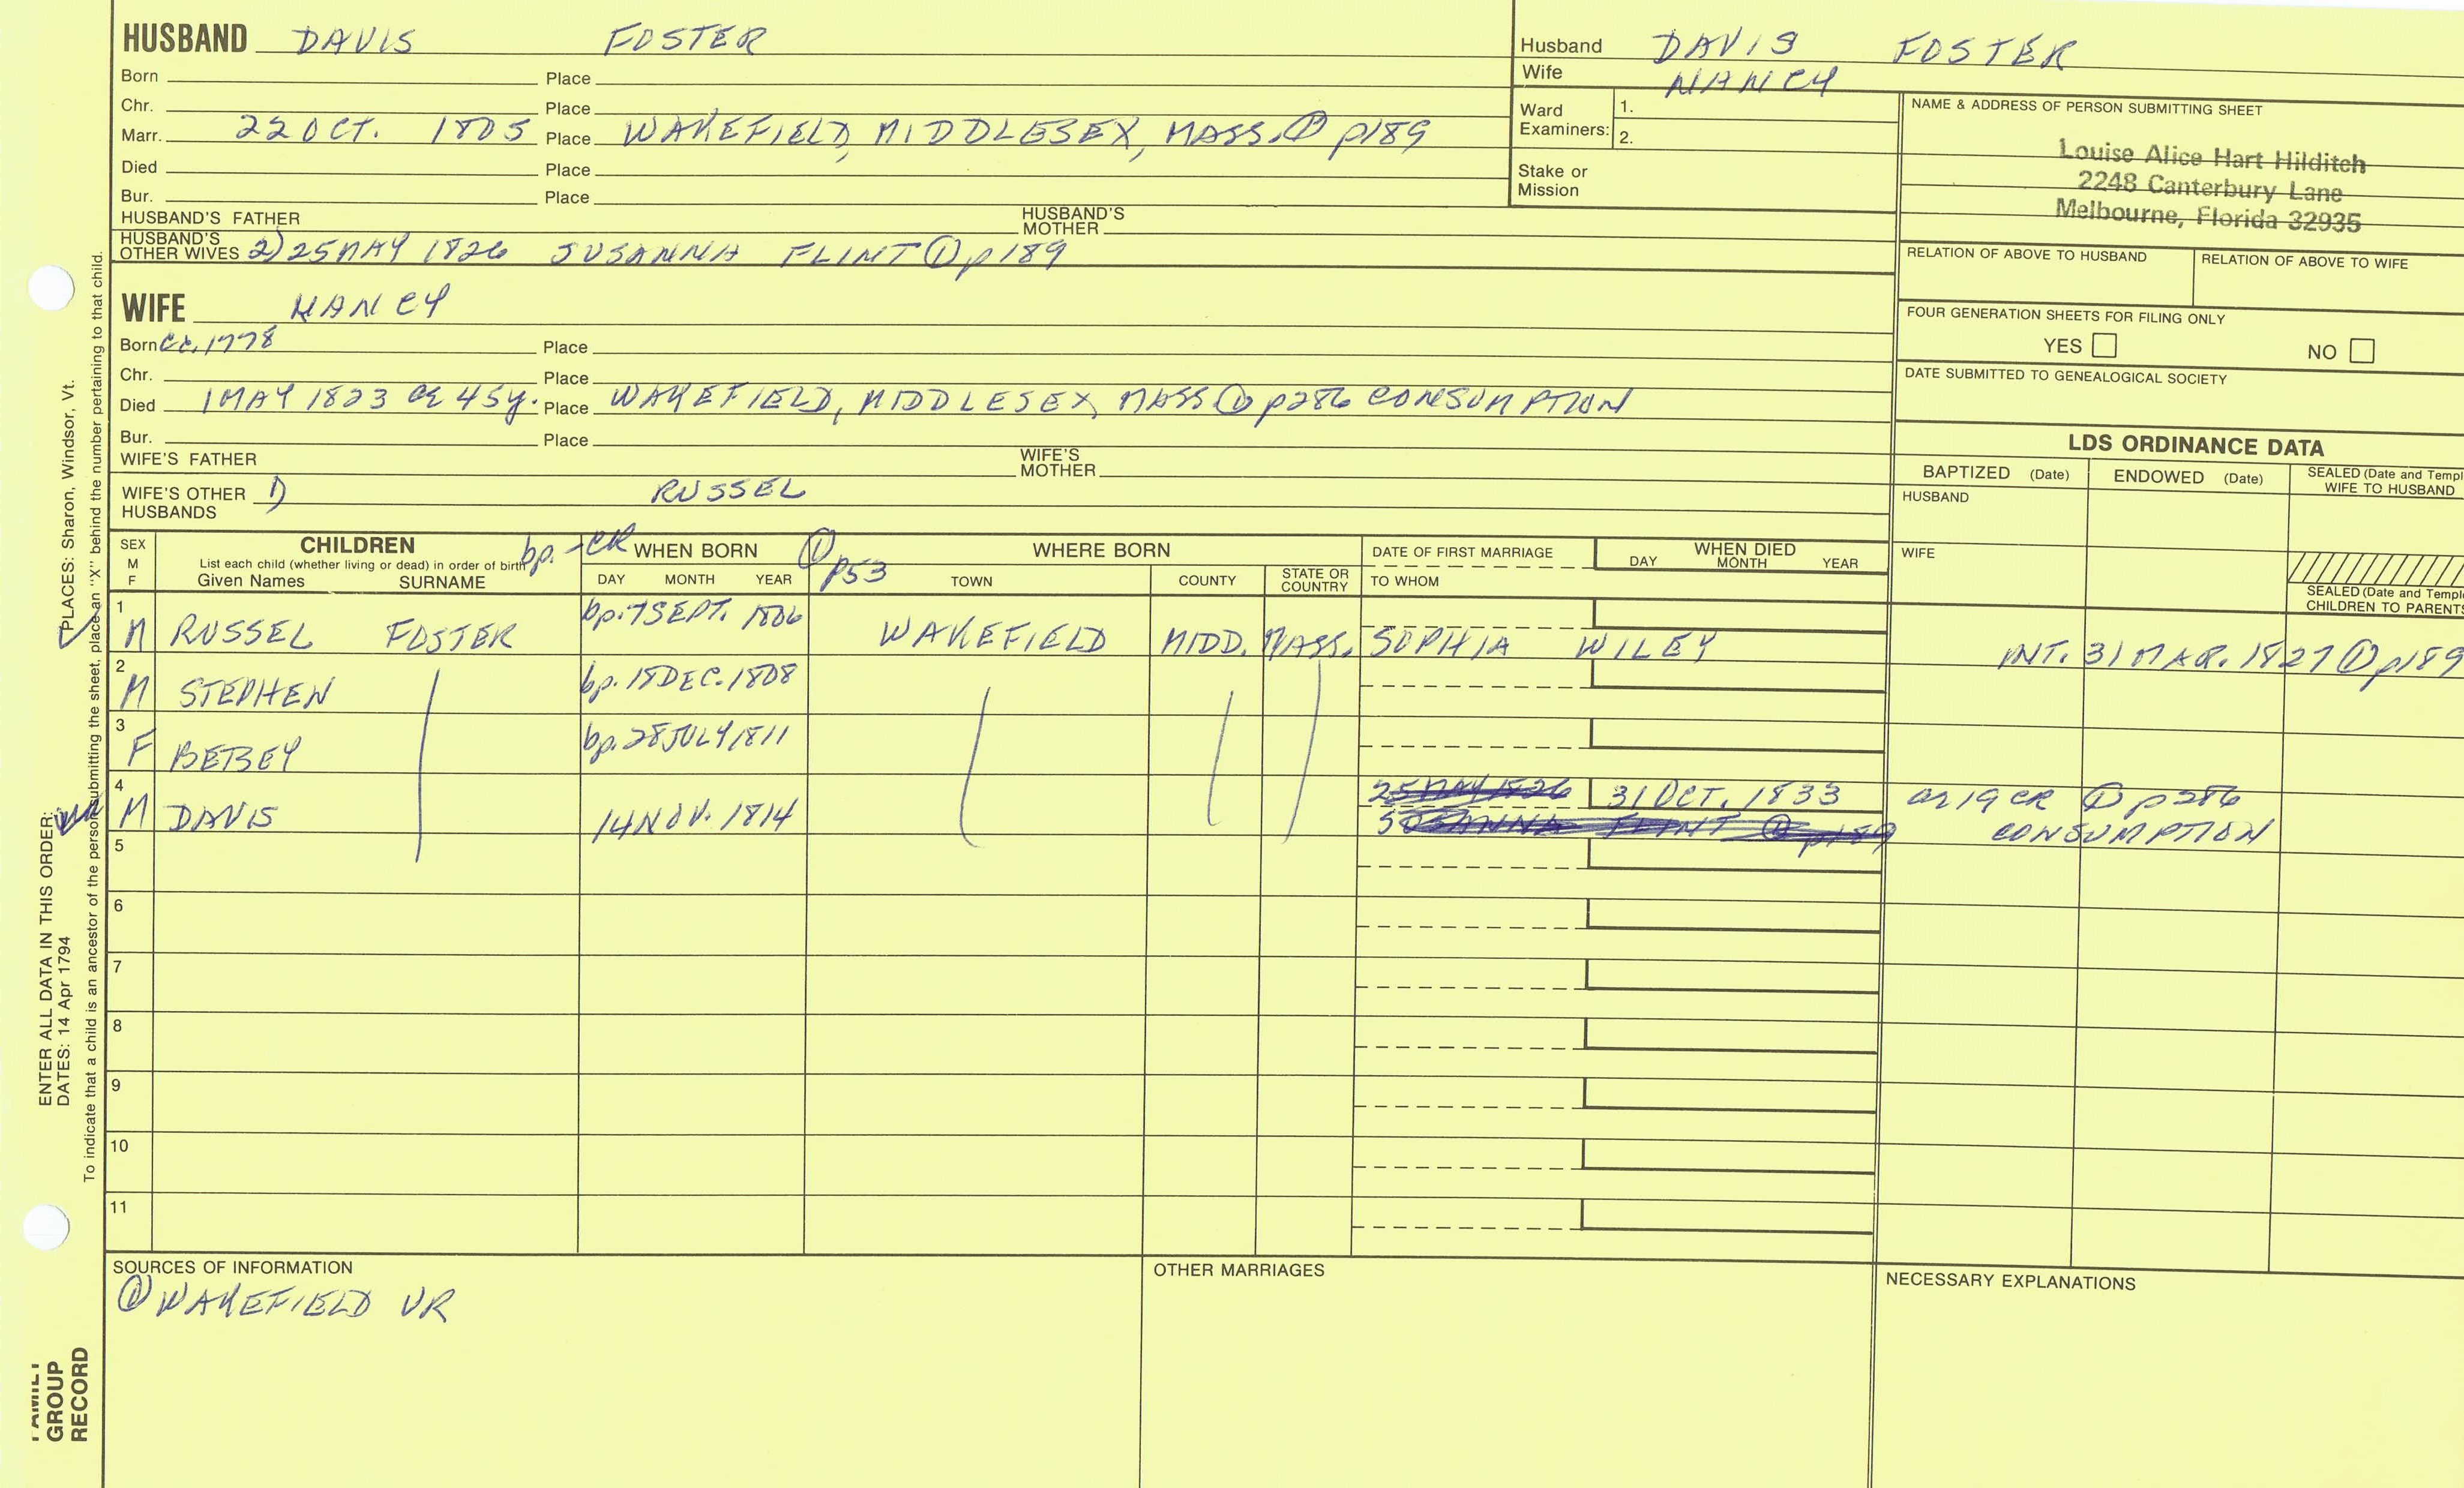 HUSBAND DAVIS FOSTER
Born Place
Chr. Place
Marr. 22 OCT. 1805 Place WAKEFIELD, MIDDLESEX, MASS. ① p189
Died Place
Bur. Place
HUSBAND'S FATHER HUSBAND'S MOTHER
HUSBAND'S OTHER WIVES 2) 25 MAY 1826 SUSANNA FLINT ① p189
WIFE NANCY
Born ca. 1778 Place
Chr. Place
Died 1 MAY 1823 ae 45y. Place WAKEFIELD, MIDDLESEX, MASS ① p286 CONSUMPTION
Bur. Place
WIFE'S FATHER WIFE'S MOTHER
WIFE'S OTHER HUSBANDS 1) RUSSEL
Husband DAVIS FOSTER
Wife NANCY
Ward Examiners: 1.
2.
Stake or Mission
NAME & ADDRESS OF PERSON SUBMITTING SHEET
Louise Alice Hart Hilditch
2248 Canterbury Lane
Melbourne, Florida 32935
RELATION OF ABOVE TO HUSBAND RELATION OF ABOVE TO WIFE
FOUR GENERATION SHEETS FOR FILING ONLY
YES NO
DATE SUBMITTED TO GENEALOGICAL SOCIETY
LDS ORDINANCE DATA
BAPTIZED (Date) ENDOWED (Date) SEALED (Date and Templ
WIFE TO HUSBAND
HUSBAND
WIFE
SEALED (Date and Templ
CHILDREN TO PARENTS
SEX M F
CHILDREN
List each child (whether living or dead) in order of birth
Given Names SURNAME
bp. - CR WHEN BORN ① p53
DAY MONTH YEAR
WHERE BORN
TOWN COUNTY STATE OR COUNTRY
DATE OF FIRST MARRIAGE
TO WHOM
WHEN DIED
DAY MONTH YEAR
1 M RUSSEL FOSTER bp. 7 SEPT. 1806 WAKEFIELD MIDD. MASS. SOPHIA WILEY INT. 31 MAR. 1827 ① p189
2 M STEPHEN bp. 18 DEC. 1808
3 F BETSEY bp. 28 JULY 1811
4 M DAVIS 14 NOV. 1814 25 MAY 1826 31 OCT. 1833 ae 19 CR ① p286
SUSANNA FLINT ① p189 CONSUMPTION
5
6
7
8
9
10
11
SOURCES OF INFORMATION
① WAKEFIELD VR
OTHER MARRIAGES
NECESSARY EXPLANATIONS
ENTER ALL DATA IN THIS ORDER:
DATES: 14 Apr 1794
PLACES: Sharon, Windsor, Vt.
To indicate that a child is an ancestor of the person submitting the sheet, place an "X" behind the number pertaining to that child.
FAMILY
GROUP
RECORD